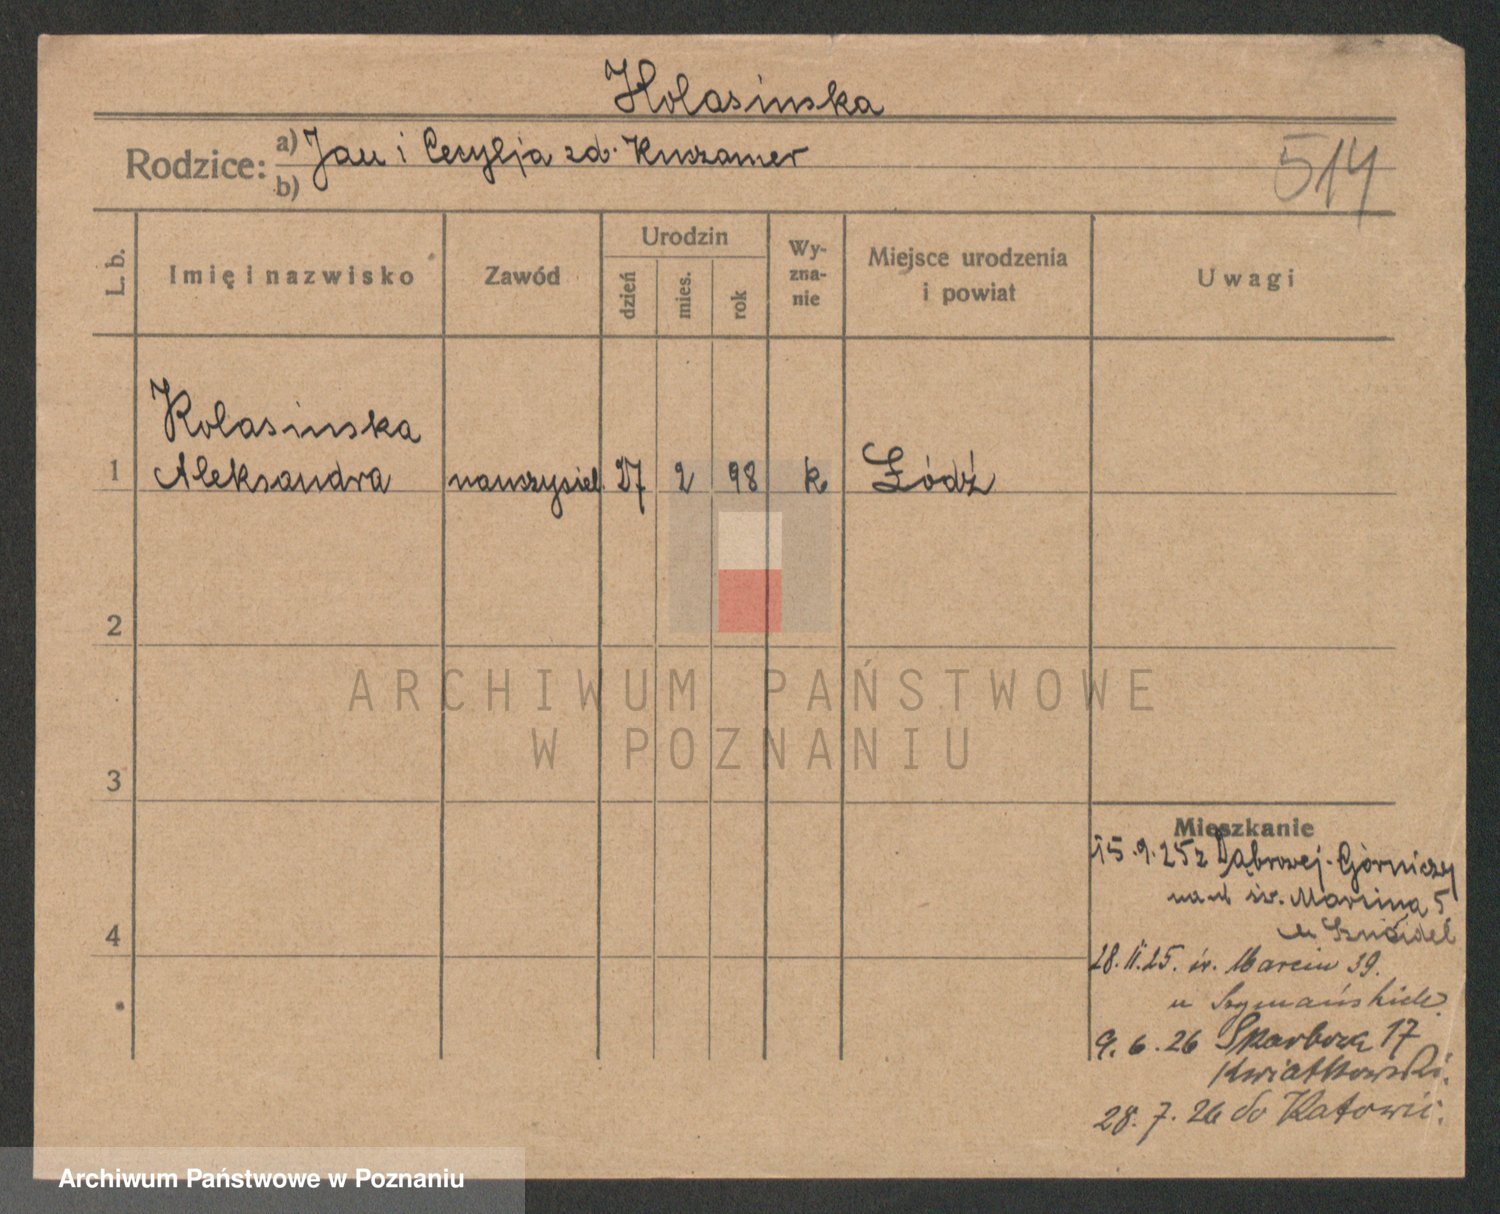 Kolasinska
Rodzice: a) Jan i Cecylja zd. Kuszamer
b)
514
L. b.
Imię i nazwisko
Zawód
Urodzin
dzień
mies.
rok
Wy-
zna-
nie
Miejsce urodzenia
i powiat
Uwagi
Kolasinska
1 Aleksandra nauczyciel. 27 2 98 k Łódź
2
ARCHIWUM PAŃSTWOWE
W POZNANIU
3
Mieszkanie
15.9.25 z Dąbrowej-Górniczy
na ul św. Marcina 5
u
4
28.11.25. św. Marcin 39.
u
9.6.26 Skarbowa 17
Kwiatkowski.
28.7.26 do Katowic.
Archiwum Państwowe w Poznaniu